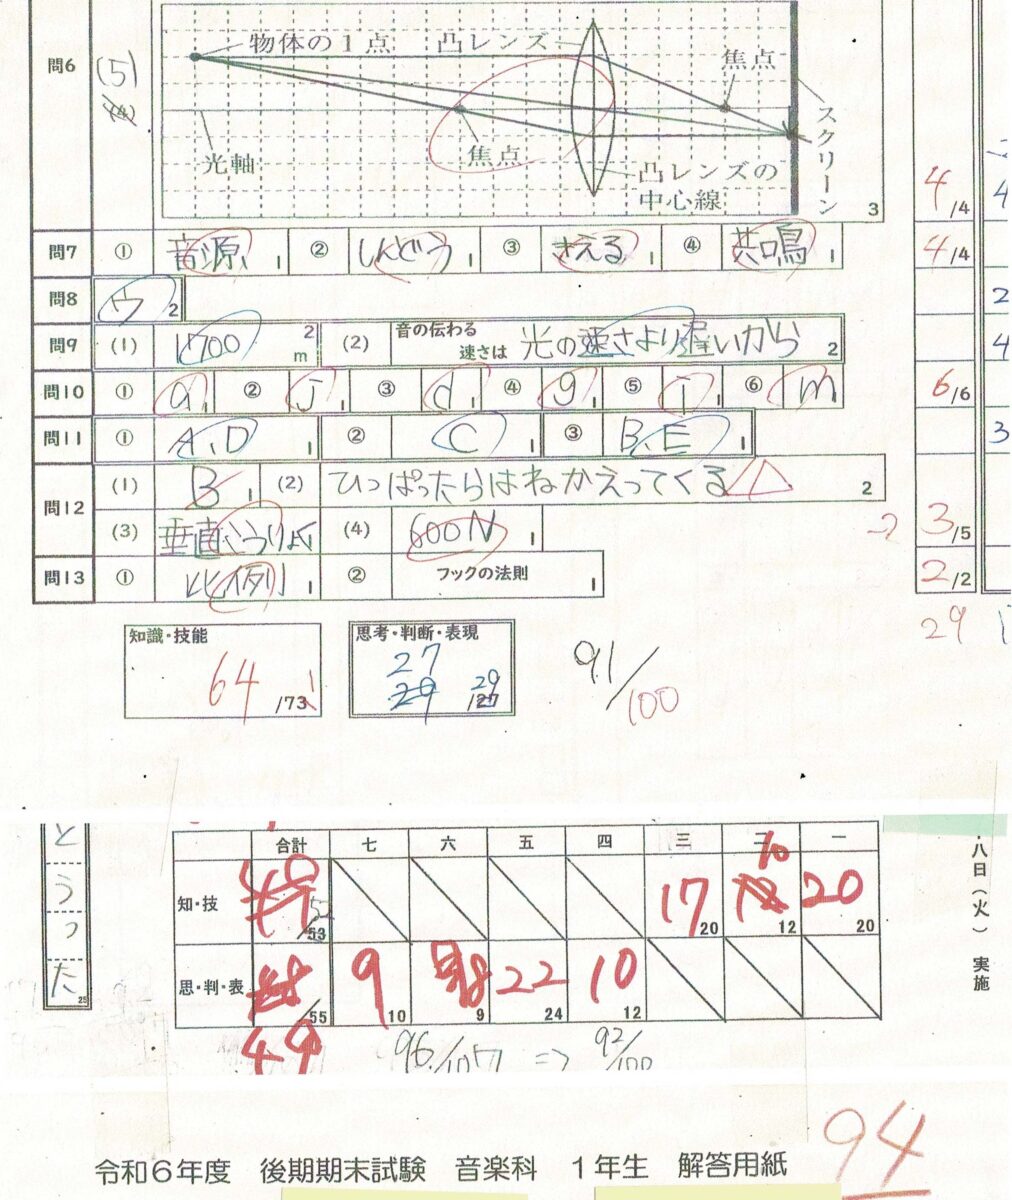 物体の1点 凸レンズ 焦点
問6 (5)
スクリーン
光軸 焦点 凸レンズの
中心線 3
4/4
問7 ① 音源 1 ② しんどう 1 ③ きえる 1 ④ 共鳴 1 4/4
問8 ウ 2 2
問9 (1) 1700 m 2 (2) 音の伝わる
速さは 光の速さより遅いから 2 4
問10 ① a 1 ② j 1 ③ d 1 ④ g 1 ⑤ i 1 ⑥ m 1 6/6
問11 ① A、D 1 ② C 1 ③ B、E 1 3
問12 (1) B 1 (2) ひっぱったらはねかえってくる 2
(3) 垂直こうりょく (4) 600N 1 -2 3/5
問13 ① 比例 1 ② フックの法則 1 2/2
知識・技能 思考・判断・表現 29
64 /73 27 29 29 /27 91/100
とうった 25
合計 七 六 五 四 三 二 一
知・技 52 /53 17 20 10 12 20 20
思・判・表 /55 9 10 8 9 22 24 10 12
49 96/107 ⇒ 92/100
八日(火) 実施
94
令和6年度 後期期末試験 音楽科 1年生 解答用紙